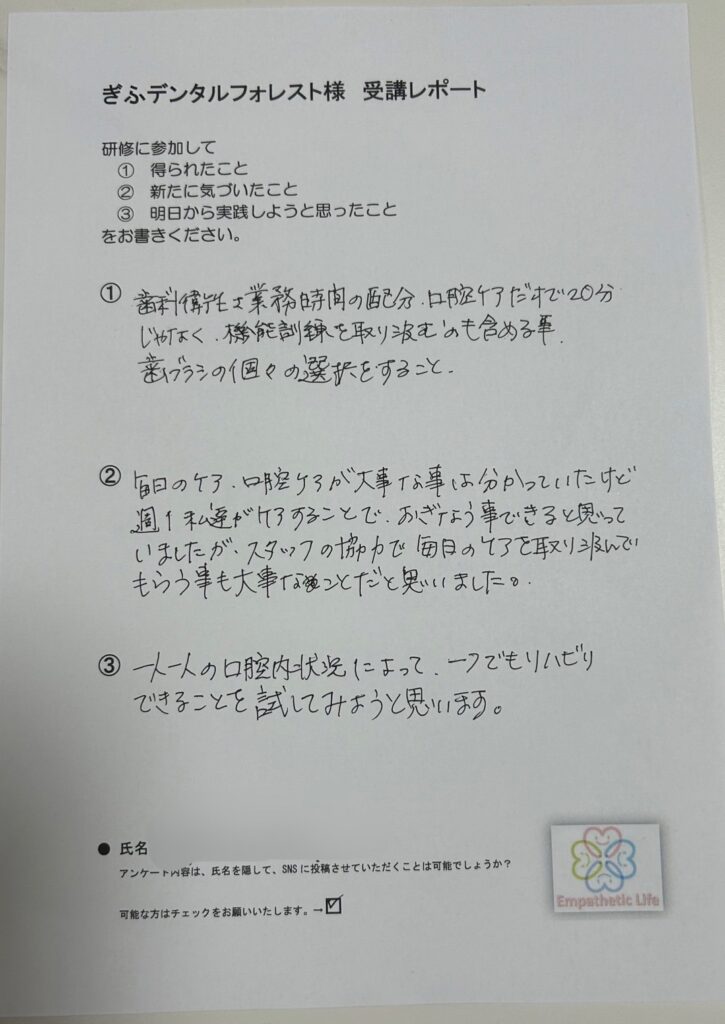 ぎふデンタルフォレスト様 受講レポート
研修に参加して
① 得られたこと
② 新たに気づいたこと
③ 明日から実践しようと思ったこと
をお書きください。
① 歯科衛生士業務時間の配分、口腔ケアだけで20分
じゃなく、機能訓練を取り込むのも含める事、
歯ブラシの個々の選択をすること、
② 毎日のケア、口腔ケアが大事な事は分かっていたけど
週1私達がケアすることで、おぎなう事できると思って
いましたが、スタッフの協力で毎日のケアを取り込んで
もらう事も大事なことだと思いました。
③ 一人一人の口腔内状況によって、一つでもリハビリ
できることを試してみようと思います。
● 氏名
アンケート内容は、氏名を隠して、SNSに投稿させていただくことは可能でしょうか？
可能な方はチェックをお願いいたします。→☑
Empathetic Life